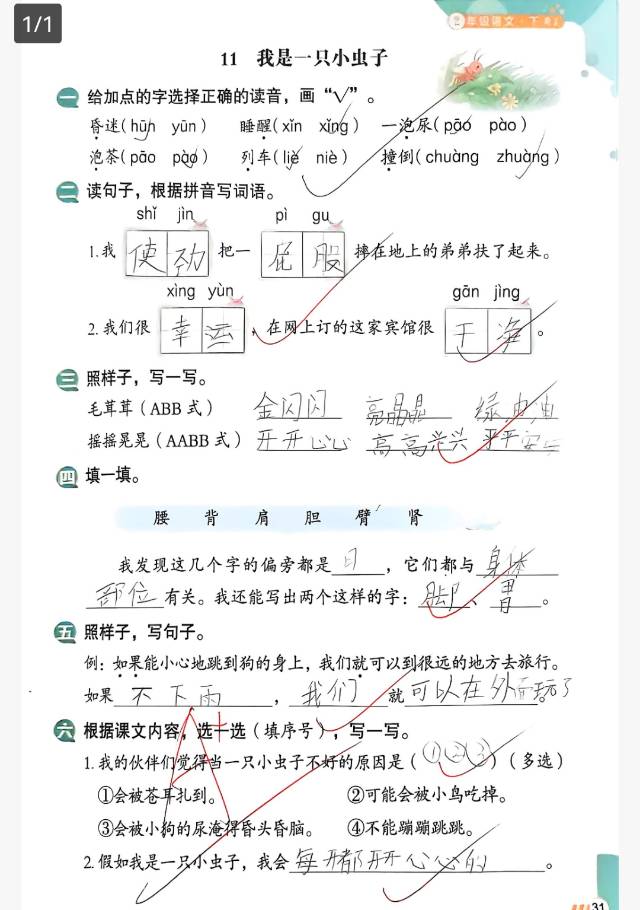 1/1
年级语文·下
11 我是一只小虫子
一 给加点的字选择正确的读音，画“√”。
昏迷（hūn yūn） 睡醒（xǐn xǐng） 一泡尿（pāo pào）
泡茶（pāo pào） 列车（liè niè） 撞倒（chuàng zhuàng）
二 读句子，根据拼音写词语。
shǐ jìn pì gu
1.我 使劲 把一 屁股 摔在地上的弟弟扶了起来。
xìng yùn gān jìng
2.我们很 幸运 ，在网上订的这家宾馆很 干净 。
三 照样子，写一写。
毛茸茸（ABB式） 金闪闪 亮晶晶 绿油油
摇摇晃晃（AABB式） 开开心心 高高兴兴 平平安安
四 填一填。
腰 背 肩 胆 臂 肾
我发现这几个字的偏旁都是 月 ，它们都与 身体
部位 有关。我还能写出两个这样的字： 脚 、 胃 。
五 照样子，写句子。
例：如果能小心地跳到狗的身上，我们就可以到很远的地方去旅行。
如果 不下雨 ， 我们 就 可以在外面玩了 。
六 根据课文内容，选一选（填序号），写一写。
1.我的伙伴们觉得当一只小虫子不好的原因是（ ①②③ ）（多选）
①会被苍耳扎到。 ②可能会被小鸟吃掉。
③会被小狗的尿淹得昏头昏脑。 ④不能蹦蹦跳跳。
2.假如我是一只小虫子，我会 每天都开开心心的 。
31